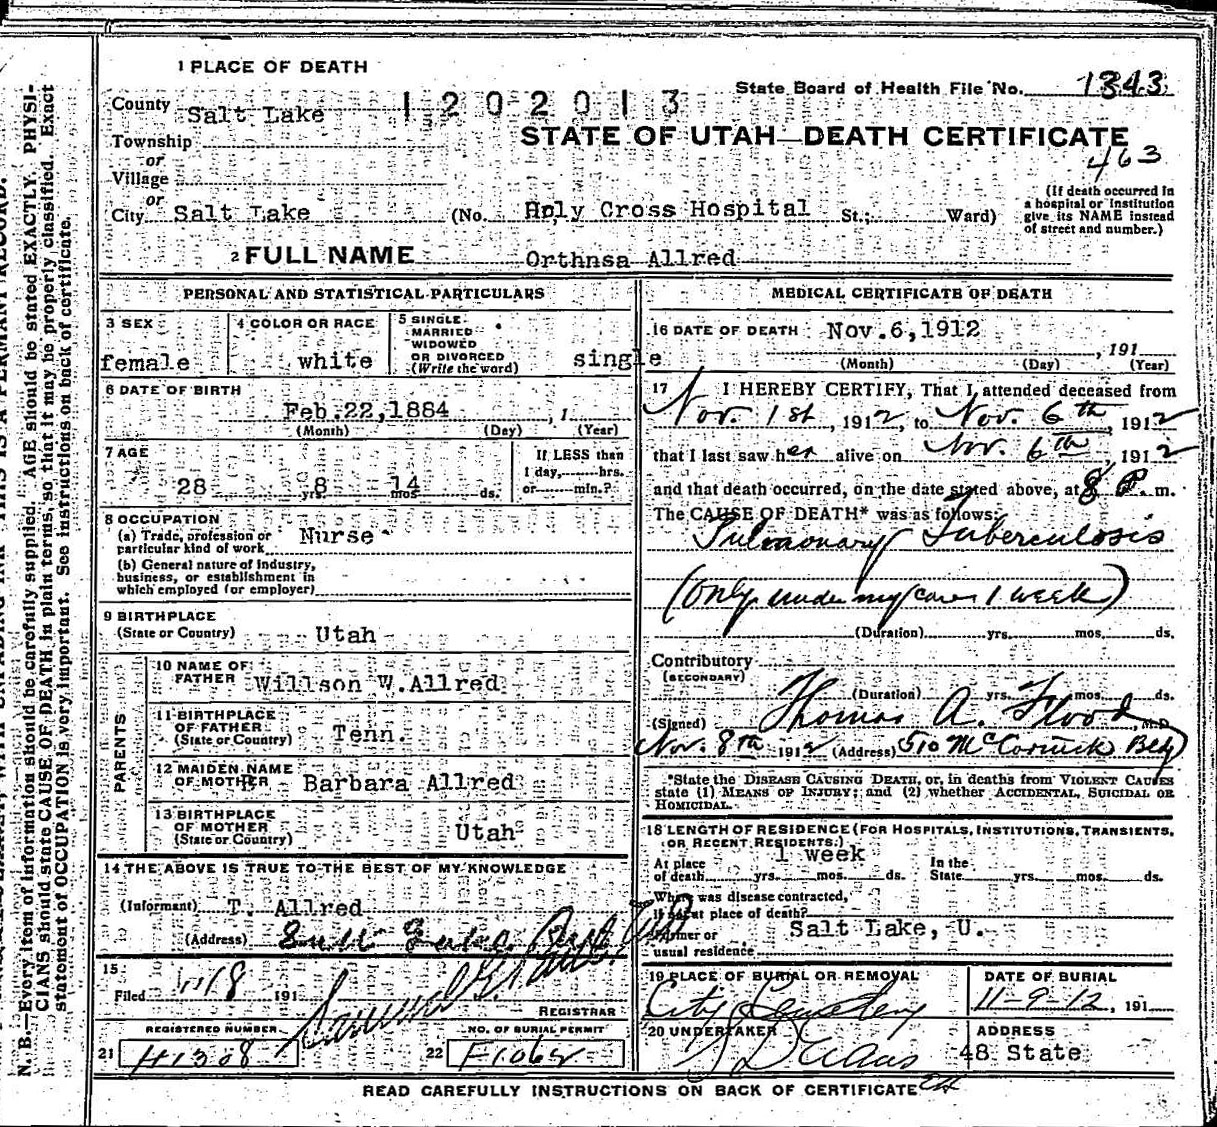 1 PLACE OF DEATH
State Board of Health File No. 1343
County Salt Lake 1202013
STATE OF UTAH—DEATH CERTIFICATE
Township
or
Village
or
463
City Salt Lake (No. Holy Cross Hospital St.; Ward)
(If death occurred in a hospital or institution give its NAME instead of street and number.)
2 FULL NAME Orthnsa Allred
PERSONAL AND STATISTICAL PARTICULARS
3 SEX female
4 COLOR OR RACE white
5 SINGLE, MARRIED, WIDOWED OR DIVORCED (Write the word) single
6 DATE OF BIRTH
Feb.22,1884, 1
(Month) (Day) (Year)
7 AGE
28 8 yrs. 14 mos. ds.
If LESS than 1 day, hrs. or min.?
8 OCCUPATION
(a) Trade, profession or particular kind of work Nurse
(b) General nature of industry, business, or establishment in which employed (or employer)
9 BIRTHPLACE
(State or Country) Utah
PARENTS
10 NAME OF FATHER Willson W.Allred
11 BIRTHPLACE OF FATHER (State or Country) Tenn.
12 MAIDEN NAME OF MOTHER Barbara Allred
13 BIRTHPLACE OF MOTHER (State or Country) Utah
14 THE ABOVE IS TRUE TO THE BEST OF MY KNOWLEDGE
(Informant) T. Allred
(Address) Salt Lake
15
Filed 11/8 191
REGISTRAR
REGISTERED NUMBER
21 H1308
NO. OF BURIAL PERMIT
22 F1062
MEDICAL CERTIFICATE OF DEATH
16 DATE OF DEATH Nov.6,1912
, 191
(Month) (Day) (Year)
17 I HEREBY CERTIFY, That I attended deceased from
Nov. 1st, 1912, to Nov. 6th, 1912
that I last saw her alive on Nov. 6th, 1912
and that death occurred, on the date stated above, at 8 P. m.
The CAUSE OF DEATH* was as follows:
Pulmonary Tuberculosis
(Only under my care 1 week)
(Duration) yrs. mos. ds.
Contributory
(SECONDARY)
(Duration) yrs. mos. ds.
(Signed) Thomas A. Flood M.D.
Nov. 8th 1912 (Address) 510 McCornick Bldg
*State the DISEASE CAUSING DEATH, or, in deaths from VIOLENT CAUSES
state (1) MEANS OF INJURY; and (2) whether ACCIDENTAL, SUICIDAL OR
HOMICIDAL.
18 LENGTH OF RESIDENCE (FOR HOSPITALS, INSTITUTIONS, TRANSIENTS,
OR RECENT RESIDENTS.)
At place of death yrs. 1 week mos. ds. In the State yrs. mos. ds.
Where was disease contracted,
if not at place of death?
Former or usual residence Salt Lake, U.
19 PLACE OF BURIAL OR REMOVAL
City Cemetery
DATE OF BURIAL
11-9-12, 191
20 UNDERTAKER
Evans
ADDRESS
48 State
READ CAREFULLY INSTRUCTIONS ON BACK OF CERTIFICATE
N. B.—Every item of information should be carefully supplied. AGE should be stated EXACTLY. PHYSI-
CIANS should state CAUSE OF DEATH in plain terms, so that it may be properly classified. Exact
statement of OCCUPATION is very important. See instructions on back of certificate.